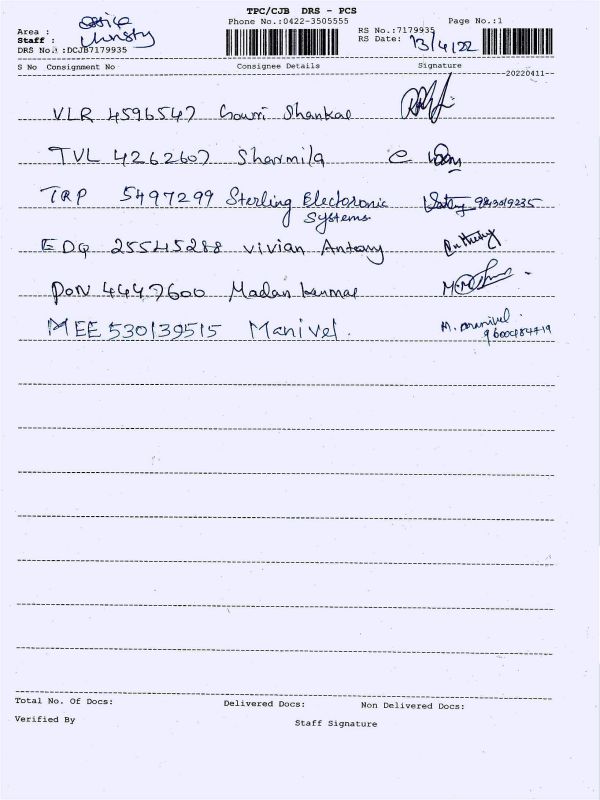 TPC/CJB DRS - PCS
Area : office
Phone No.:0422-3505555
Page No.:1
Staff : Christy
RS No.:7179935
RS Date: 13/4/22
DRS No.2 :DCJB7179935
S No Consignment No Consignee Details Signature
20220411
VLR 4596547 Gowri Shankar
TVL 4262607 Sharmila
TRP 5497299 Sterling Electoronic 9843019235
Systems
EDQ 25545288 vivian Antony Anthony
PON 4447600 Madan kumar
MEE 530139515 Manivel. M. Manivel
9600484419
Total No. Of Docs: Delivered Docs: Non Delivered Docs:
Verified By Staff Signature